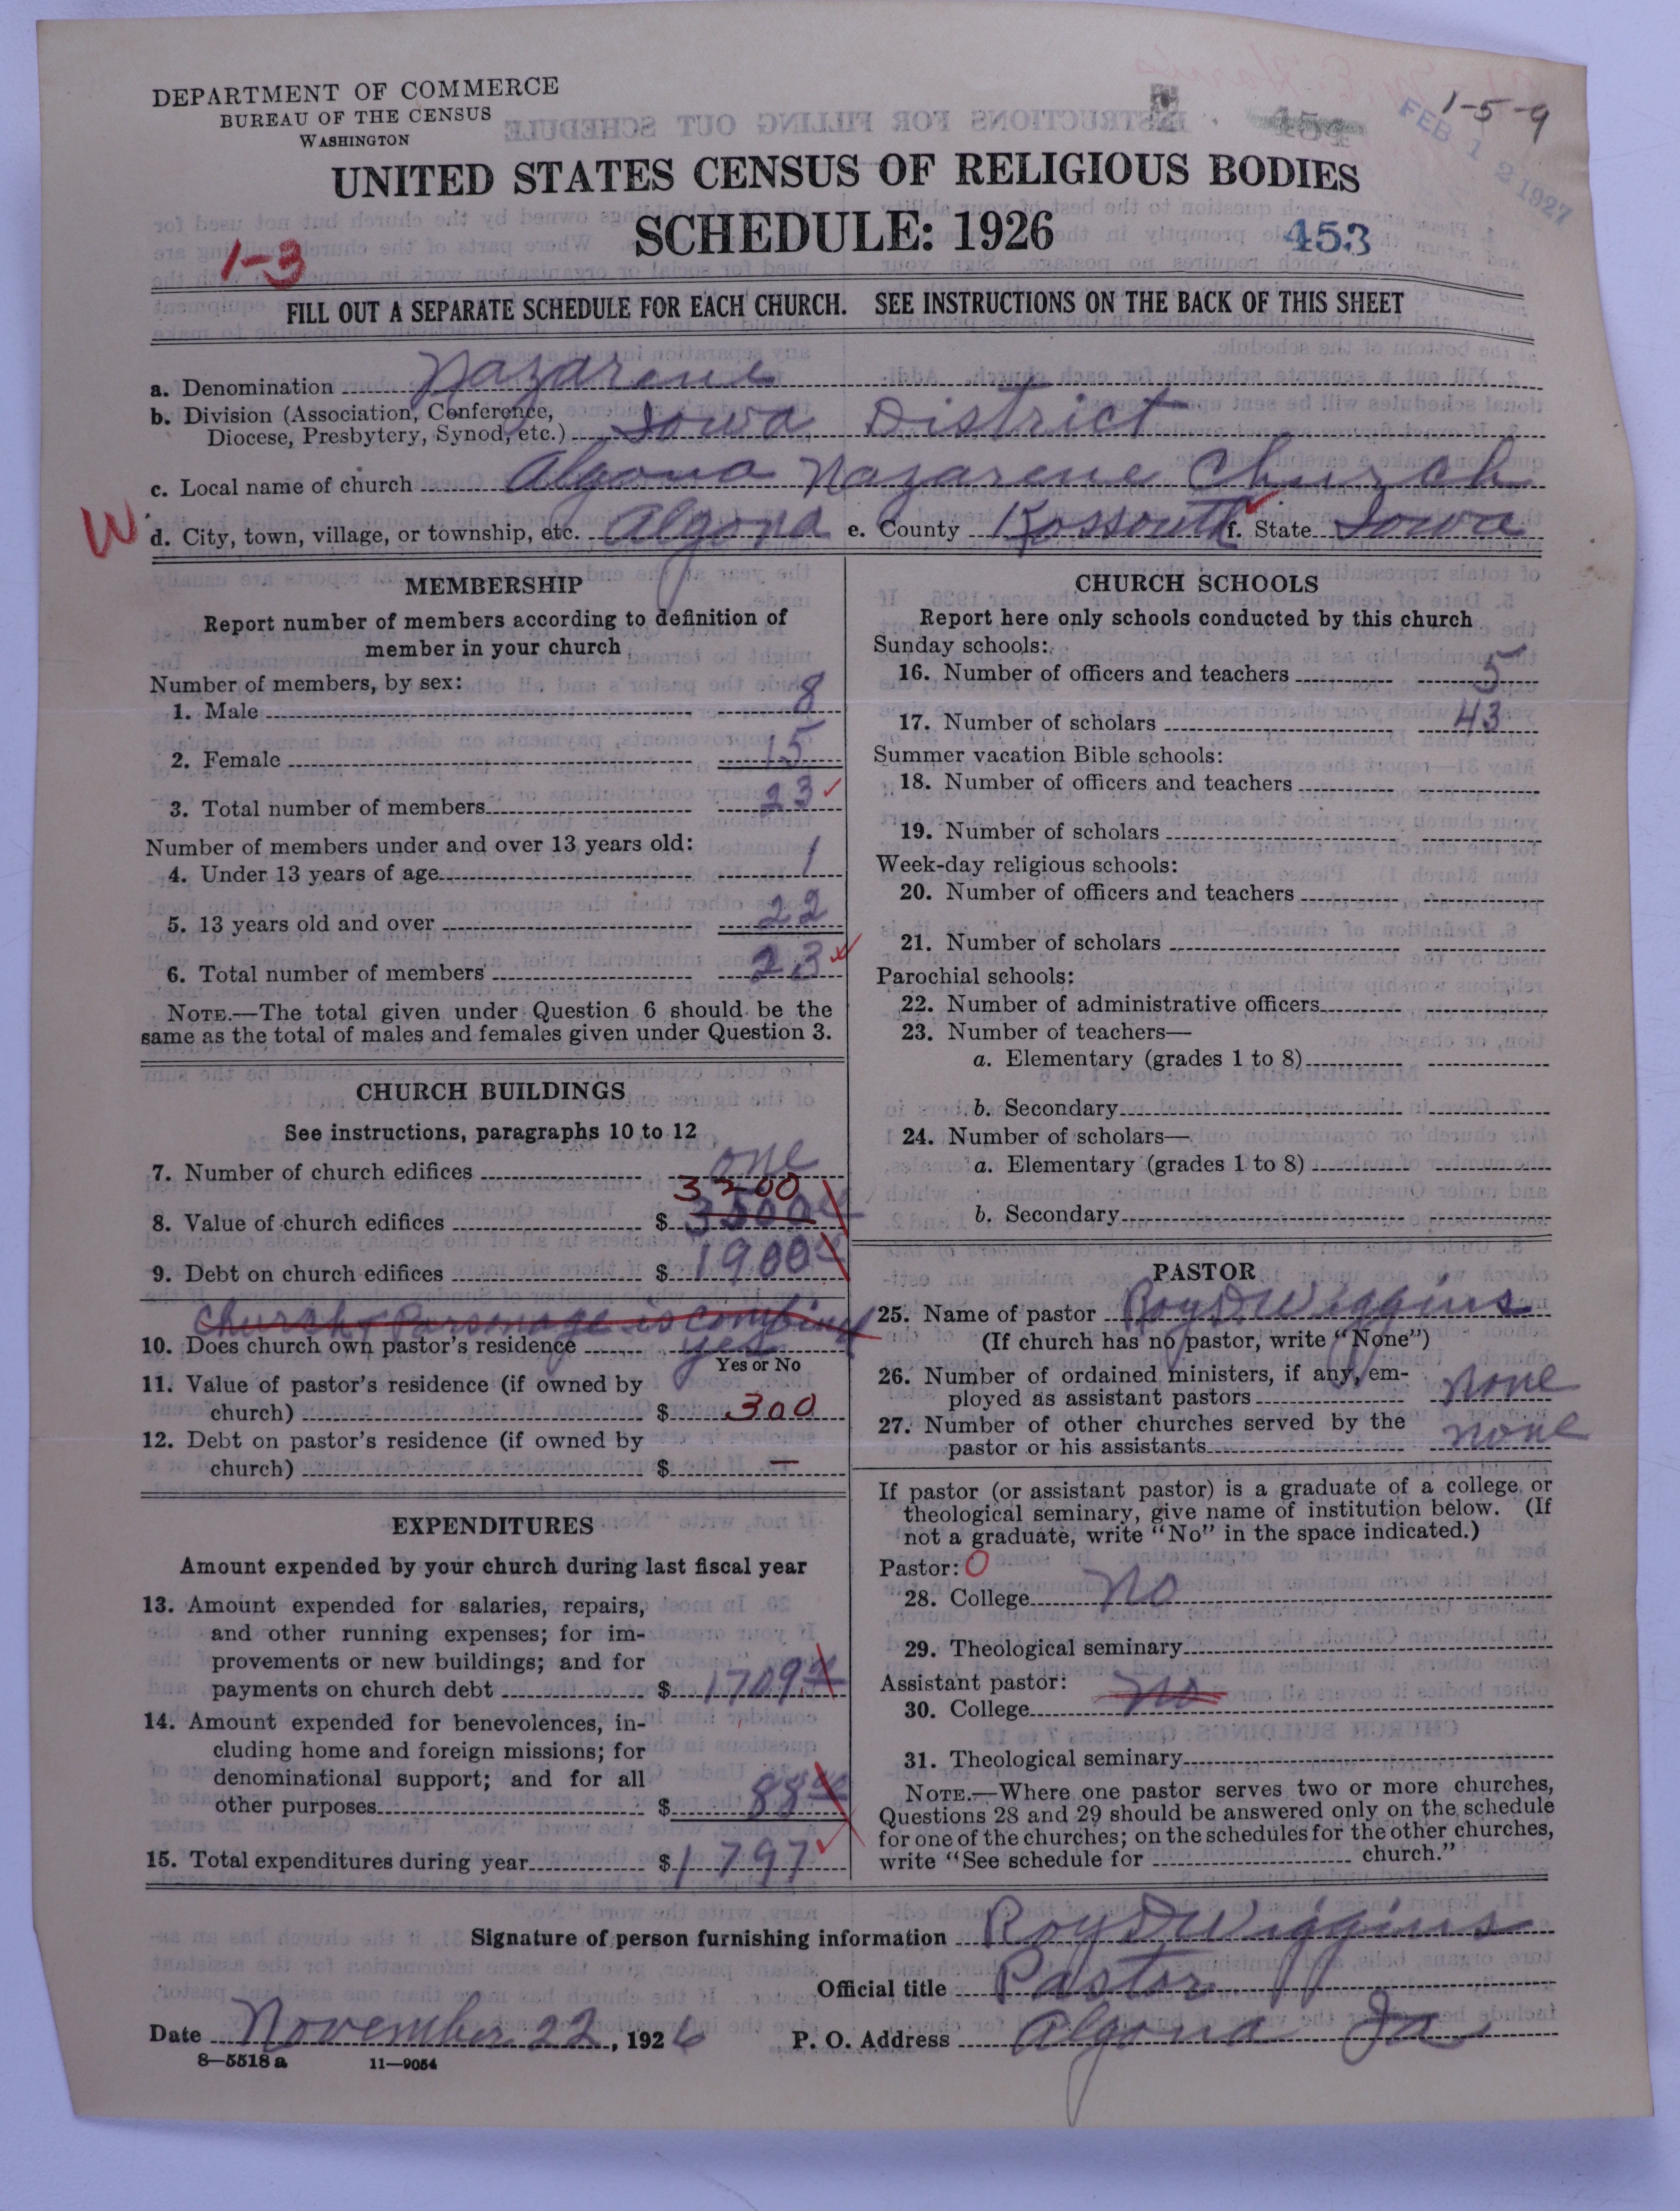 DEPARTMENT OF COMMERCE
BUREAU OF THE CENSUS
WASHINGTON
1-5-9
FEB 12 1927
UNITED STATES CENSUS OF RELIGIOUS BODIES
SCHEDULE: 1926
453
1-3
FILL OUT A SEPARATE SCHEDULE FOR EACH CHURCH. SEE INSTRUCTIONS ON THE BACK OF THIS SHEET
a. Denomination Nazarene
b. Division (Association, Conference,
Diocese, Presbytery, Synod, etc.) Iowa District
c. Local name of church Algona Nazarene Church
W
d. City, town, village, or township, etc. Algona e. County Kossouth f. State Iowa
MEMBERSHIP
Report number of members according to definition of
member in your church
Number of members, by sex:
1. Male 8
2. Female 15
3. Total number of members 23
Number of members under and over 13 years old:
4. Under 13 years of age 1
5. 13 years old and over 22
6. Total number of members 23
NOTE.—The total given under Question 6 should be the
same as the total of males and females given under Question 3.
CHURCH BUILDINGS
See instructions, paragraphs 10 to 12
7. Number of church edifices one
3200
8. Value of church edifices $ 3500
9. Debt on church edifices $ 1900
Church & Parsonage is combined
10. Does church own pastor's residence yes
Yes or No
11. Value of pastor's residence (if owned by
church) $ 300
12. Debt on pastor's residence (if owned by
church) $ —
EXPENDITURES
Amount expended by your church during last fiscal year
13. Amount expended for salaries, repairs,
and other running expenses; for im-
provements or new buildings; and for
payments on church debt $ 1709
14. Amount expended for benevolences, in-
cluding home and foreign missions; for
denominational support; and for all
other purposes $ 88
15. Total expenditures during year $ 1797
CHURCH SCHOOLS
Report here only schools conducted by this church
Sunday schools:
16. Number of officers and teachers 5
17. Number of scholars 43
Summer vacation Bible schools:
18. Number of officers and teachers
19. Number of scholars
Week-day religious schools:
20. Number of officers and teachers
21. Number of scholars
Parochial schools:
22. Number of administrative officers
23. Number of teachers—
a. Elementary (grades 1 to 8)
b. Secondary
24. Number of scholars—
a. Elementary (grades 1 to 8)
b. Secondary
PASTOR
25. Name of pastor Roy D Wiggins
(If church has no pastor, write "None")
26. Number of ordained ministers, if any, em-
ployed as assistant pastors none
27. Number of other churches served by the
pastor or his assistants none
If pastor (or assistant pastor) is a graduate of a college or
theological seminary, give name of institution below. (If
not a graduate, write "No" in the space indicated.)
Pastor: O
28. College No
29. Theological seminary
Assistant pastor:
30. College No
31. Theological seminary
NOTE.—Where one pastor serves two or more churches,
Questions 28 and 29 should be answered only on the schedule
for one of the churches; on the schedules for the other churches,
write "See schedule for church."
Signature of person furnishing information Roy D Wiggins
Official title Pastor
Date November 22, 1926 P. O. Address Algona Ia
8—5518 a 11—9054